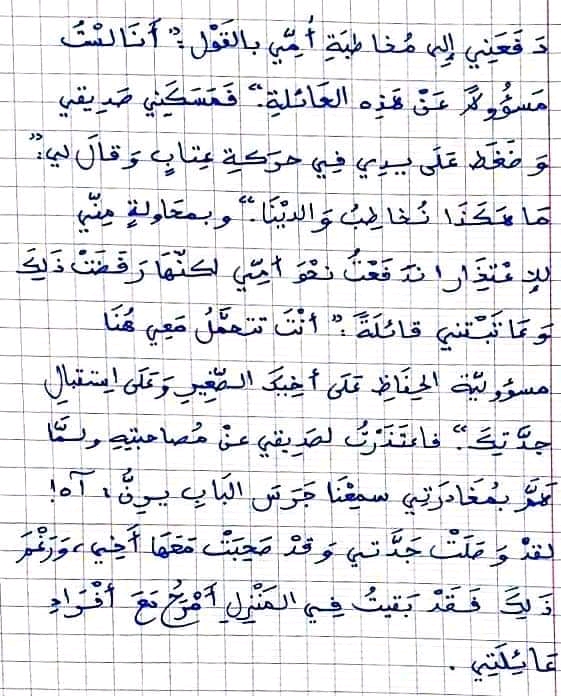 دَفَعَنِي إِلى مُخَاطَبَةِ أُمِّي بِالقَوْل :" أَنَا لَسْتُ
مَسْؤُولاً عَنْ هَذِهِ العَائلةِ." فَمَسَكَنِي صَدِيقِي
وَضَغَطَ عَلَى يَدِي فِي حرَكةِ عِتابٍ وَقالَ لي:"
مَا هَكَذَا نُخاطِبُ وَالديْنَا." وبمحَاولةٍ مِنّي
للإعْتذَارِ اندَفَعْتُ نحْوَ أمِّي لكنَّهَا رَفَضَتْ ذَلِكَ
وَعَاتَبَتْني قائلَةً :" أنْتَ تتحمَّلُ مَعِي هُنَا
مسؤوليّة الحِفَاظِ عَلى أخِيكَ الصَّغيرِ وَعَلى اِستقبالِ
جدَّتِكَ." فاعتَذَرْتُ لصَدِيقي عنْ مُصاحبتِهِ ولمَّا
هَمَّ بمُغَادرَتِي سمِعْنَا جَرَسَ البَابِ يرِنُّ، آه!
لقدْ وَصَلَتْ جَدَّتي وَقدْ صَحِبَتْ مَعَهَا أَخِي، وَرَغْمَ
ذَلِكَ فَقَدْ بَقيتُ فِي المَنْزِلِ أَمْرَحُ مَعَ أَفْرَادِ
عَائِلَتِي .